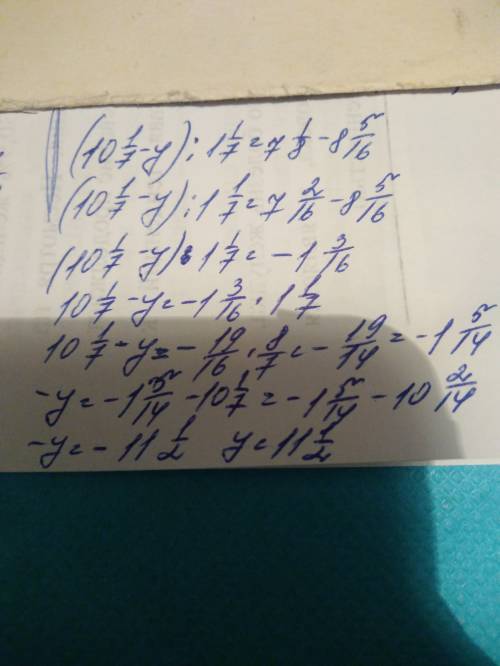 (10 1/7 - y) : 1 1/7 = 7 1/8 - 8 5/16
(10 1/7 - y) : 1 1/7 = 7 2/16 - 8 5/16
(10 1/7 - y) : 1 1/7 = - 1 3/16
10 1/7 - y = - 1 3/16 · 1 1/7
10 1/7 - y = - 19/16 · 8/7 = - 19/14 = - 1 5/14
- y = - 1 5/14 - 10 1/7 = - 1 5/14 - 10 2/14
- y = - 11 1/2 y = 11 1/2